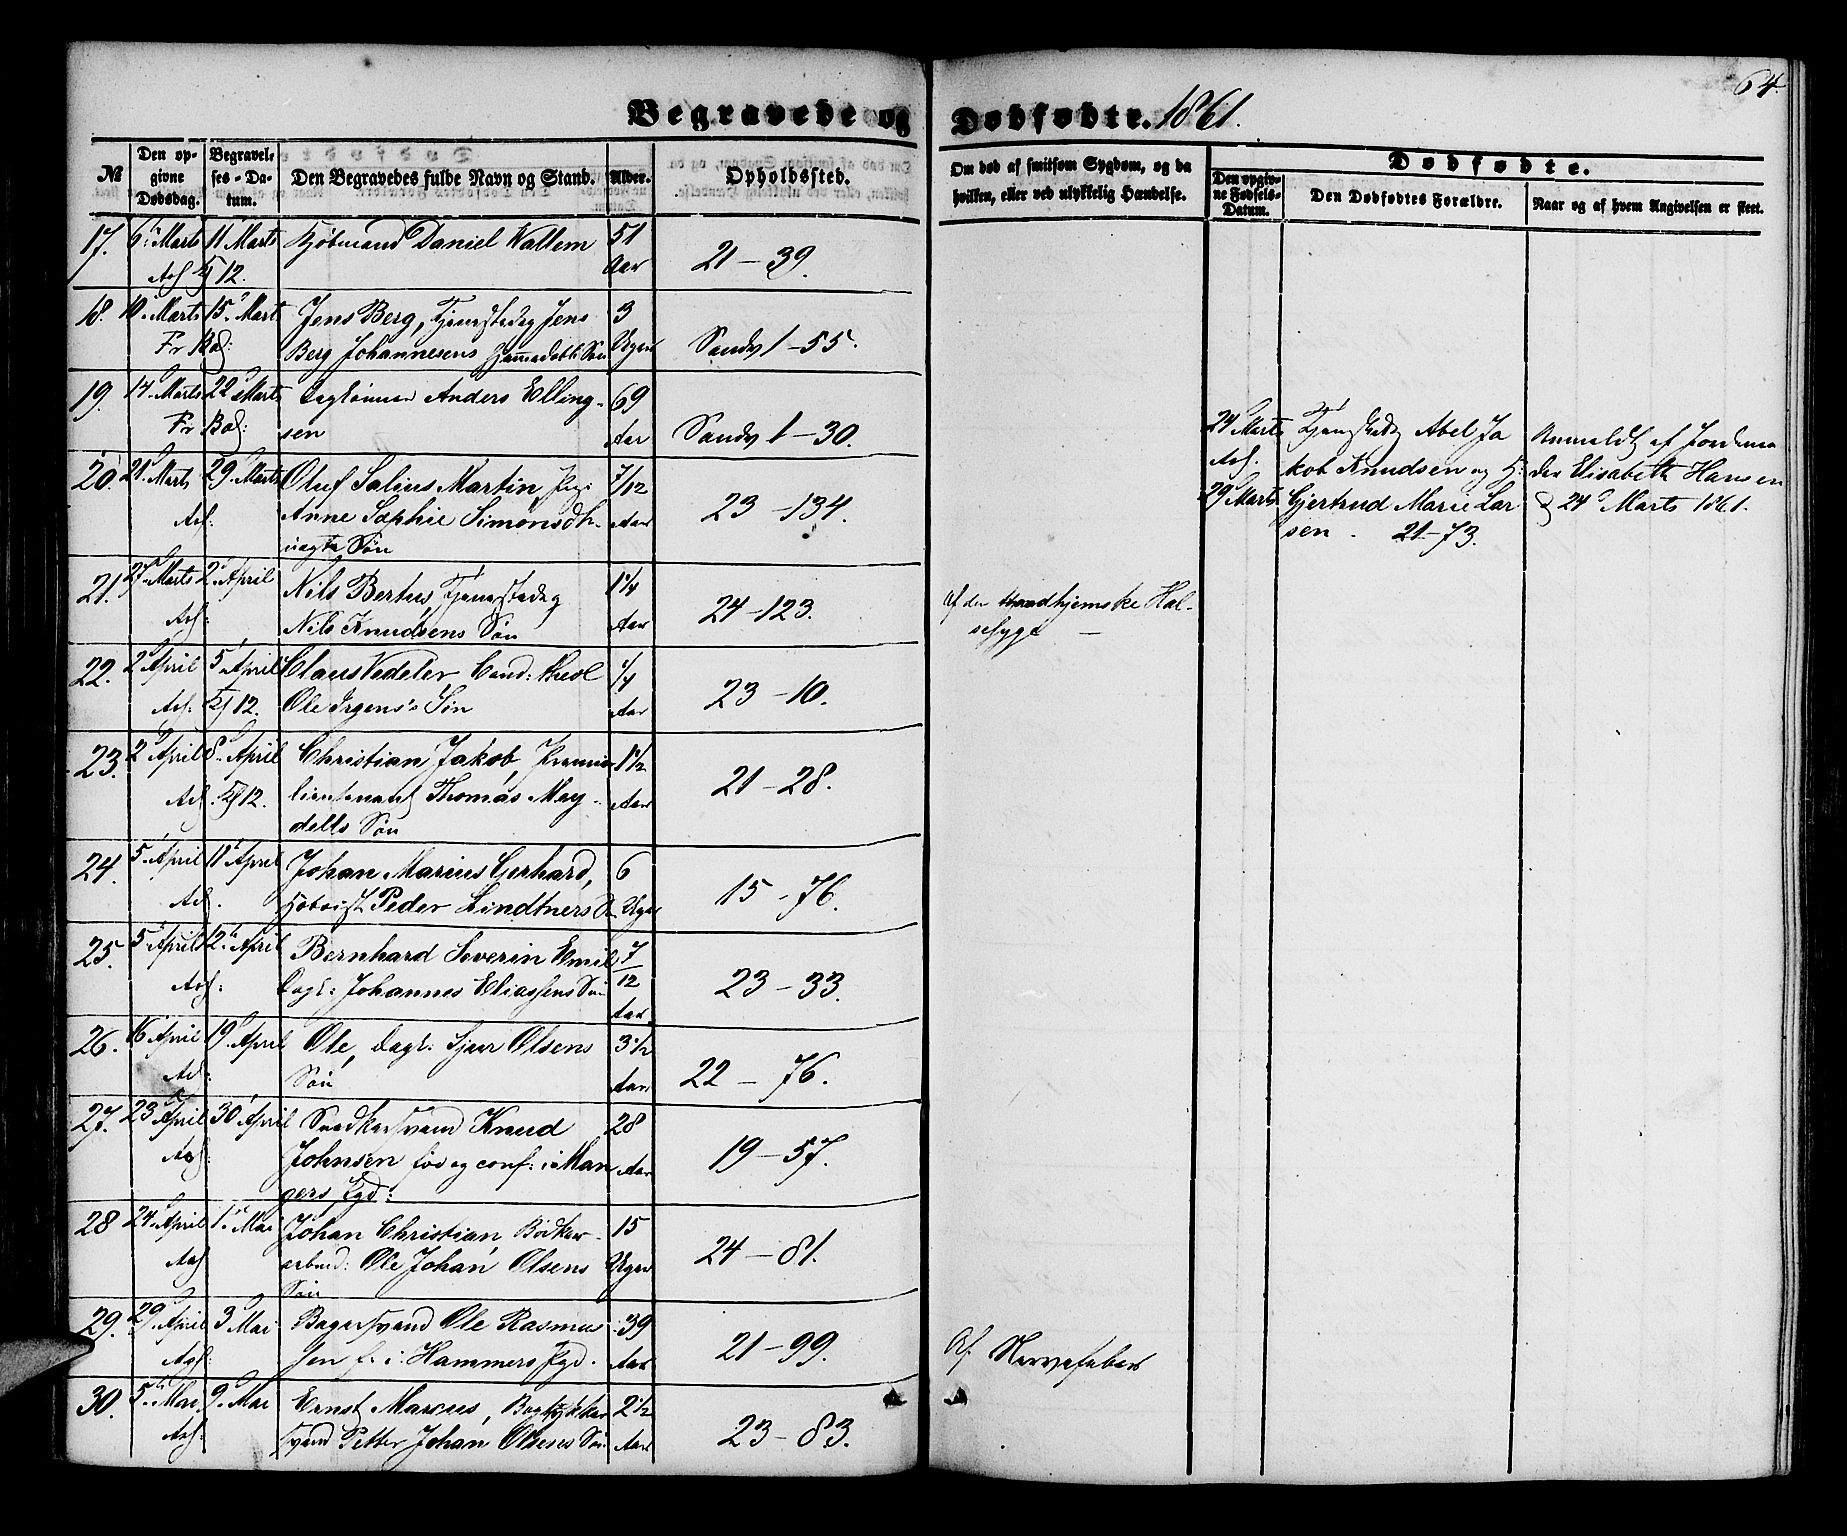 64.
Begravede og Dødfødte. 1861.
№ Den opgivne Dødsdag. Begravelses-Datum. Den Begravedes fulde Navn og Stand. Alder. Opholdssted. Om død af smitsom Sygdom, og da hvilken, eller ved ulykkelig Hændelse. Dødfødte.
Den opgivne Fødsels-Datum. Den Dødfødtes Forældre. Naar og af hvem Angivelsen er skeet.
17. 6. Marts 11 Marts Kjøbmand Daniel Wallem 51
12. Aar 21-39.
18. 10. Marts 15. Mart Jens Berg, Jens 3
Fr Berg Johannesens Søn Uger Sandv 1-55.
19. 14. Marts 22 Marts Daglønner Anders Elling- 69
Fr sen Aar Sandv 1-30.
20. 21. Marts 29. Marts Oluf Salius Martin, Pige 7/12
Anne Sophie Simonsdtr. Aar 23-134.
uægte Søn
21. 27. Marts 2. April Nils Bertus 1 1/4
Nils Knudsens Søn Aar 24-123. Af den hjemske Hal-
sesyge —
22. 2 April 5. April Claus Vedeler Cand: theol 1/4
12. Ole Irgens's Søn Aar 23-10.
23. 2 April 8. April Christian Jakob, Premier 1 1/2
12. lieutenant Thomas Mey- Aar 21-28.
dells Søn
24. 5. April 11 April Johan Marius Gerhard, 6
Peder Lindtners Uger 15-76.
25. 5. April 12. April Bernhard Severin Emil 7/12
Dagl: Johannes Eliassens Søn Aar 23-33.
26. 16 April 19. April Ole, Dagl: Sjur Olsens 3 1/2
Søn Aar 22-76.
27. 23 April 30 April Knud 28
Johnsen fød og conf: i Man Aar 19-57.
gers Pgd:
28 24. April 1. Mai Johan Christian, Bødker- 15
arbeid: Ole Johan Olsens Uger 24-81.
Søn
29. 29 April 3 Mai Bagersvend Ole Rasmus 39
sen f. i Hammers Pgd. Aar 21-99. Af Nervefeber
30. 5. Mai 9. Mai Ernst Marcus, Bogtrykker 2 1/2
svend Petter Johan Olsens Søn Aar 23-83.
24 Marts Abel Ja Anmeldt af Jordemo
kob Knudsen og H: der Elisabeth Hansen
29 Marts Gjertrud Marie Lar 24 Marts 1861.
sen. 21-73.